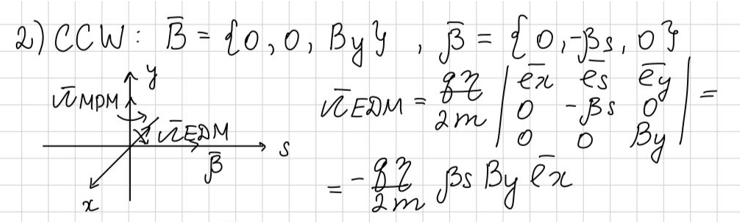 2) CCW: B̅ = {0, 0, By}, β̅ = {0, -βs, 0}
y
Ω̅MDM
Ω̅EDM
s
β̅
x
Ω̅EDM = qη/2m | e̅x e̅s e̅y | =
| 0 -βs 0 |
| 0 0 By |
= - qη/2m βs By e̅x